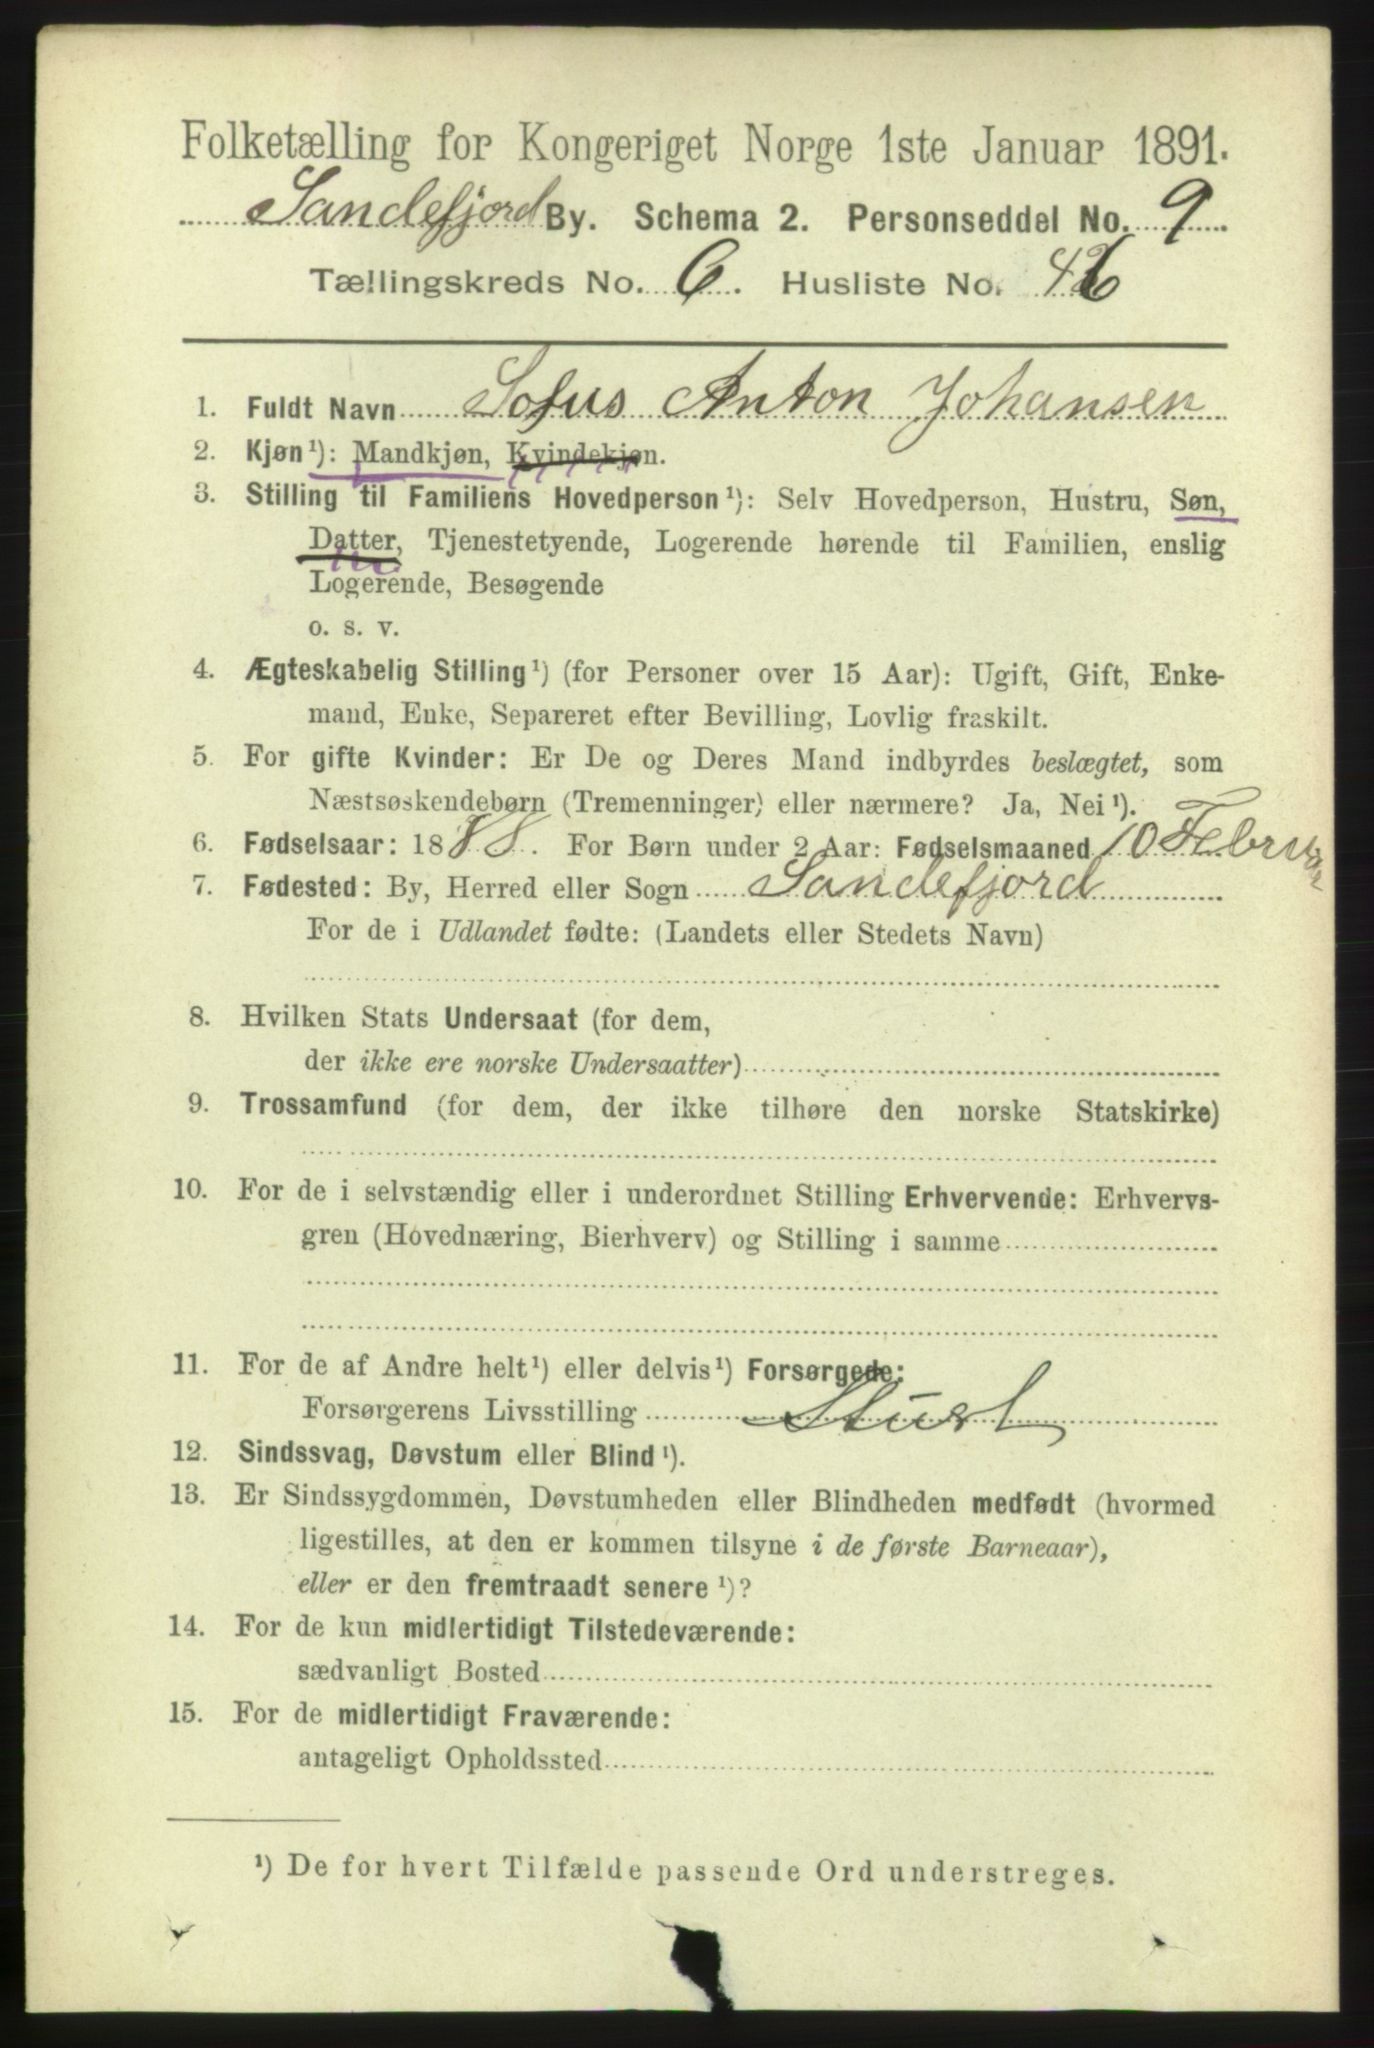 Folketælling for Kongeriget Norge 1ste Januar 1891.
Sandefjord By. Schema 2. Personseddel No. 9
Tællingskreds No. 6. Husliste No. 46
1. Fuldt Navn Sofus Anton Johansen
2. Kjøn¹): Mandkjøn, Kvindekjøn.
3. Stilling til Familiens Hovedperson¹): Selv Hovedperson, Hustru, Søn,
Datter, Tjenestetyende, Logerende hørende til Familien, enslig
Logerende, Besøgende
o. s. v.
4. Ægteskabelig Stilling¹) (for Personer over 15 Aar): Ugift, Gift, Enke-
mand, Enke, Separeret efter Bevilling, Lovlig fraskilt.
5. For gifte Kvinder: Er De og Deres Mand indbyrdes beslægtet, som
Næstsøskendebørn (Tremenninger) eller nærmere? Ja, Nei¹).
6. Fødselsaar: 1888. For Børn under 2 Aar: Fødselsmaaned 10 Februar
7. Fødested: By, Herred eller Sogn Sandefjord
For de i Udlandet fødte: (Landets eller Stedets Navn)
8. Hvilken Stats Undersaat (for dem,
der ikke ere norske Undersaatter)
9. Trossamfund (for dem, der ikke tilhøre den norske Statskirke)
10. For de i selvstændig eller i underordnet Stilling Erhvervende: Erhvervs-
gren (Hovednæring, Bierhverv) og Stilling i samme
11. For de af Andre helt¹) eller delvis¹) Forsørgede:
Forsørgerens Livsstilling
12. Sindssvag, Døvstum eller Blind¹).
13. Er Sindssygdommen, Døvstumheden eller Blindheden medfødt (hvormed
ligestilles, at den er kommen tilsyne i de første Barneaar),
eller er den fremtraadt senere¹)?
14. For de kun midlertidigt Tilstedeværende:
sædvanligt Bosted
15. For de midlertidigt Fraværende:
antageligt Opholdssted
¹) De for hvert Tilfælde passende Ord understreges.